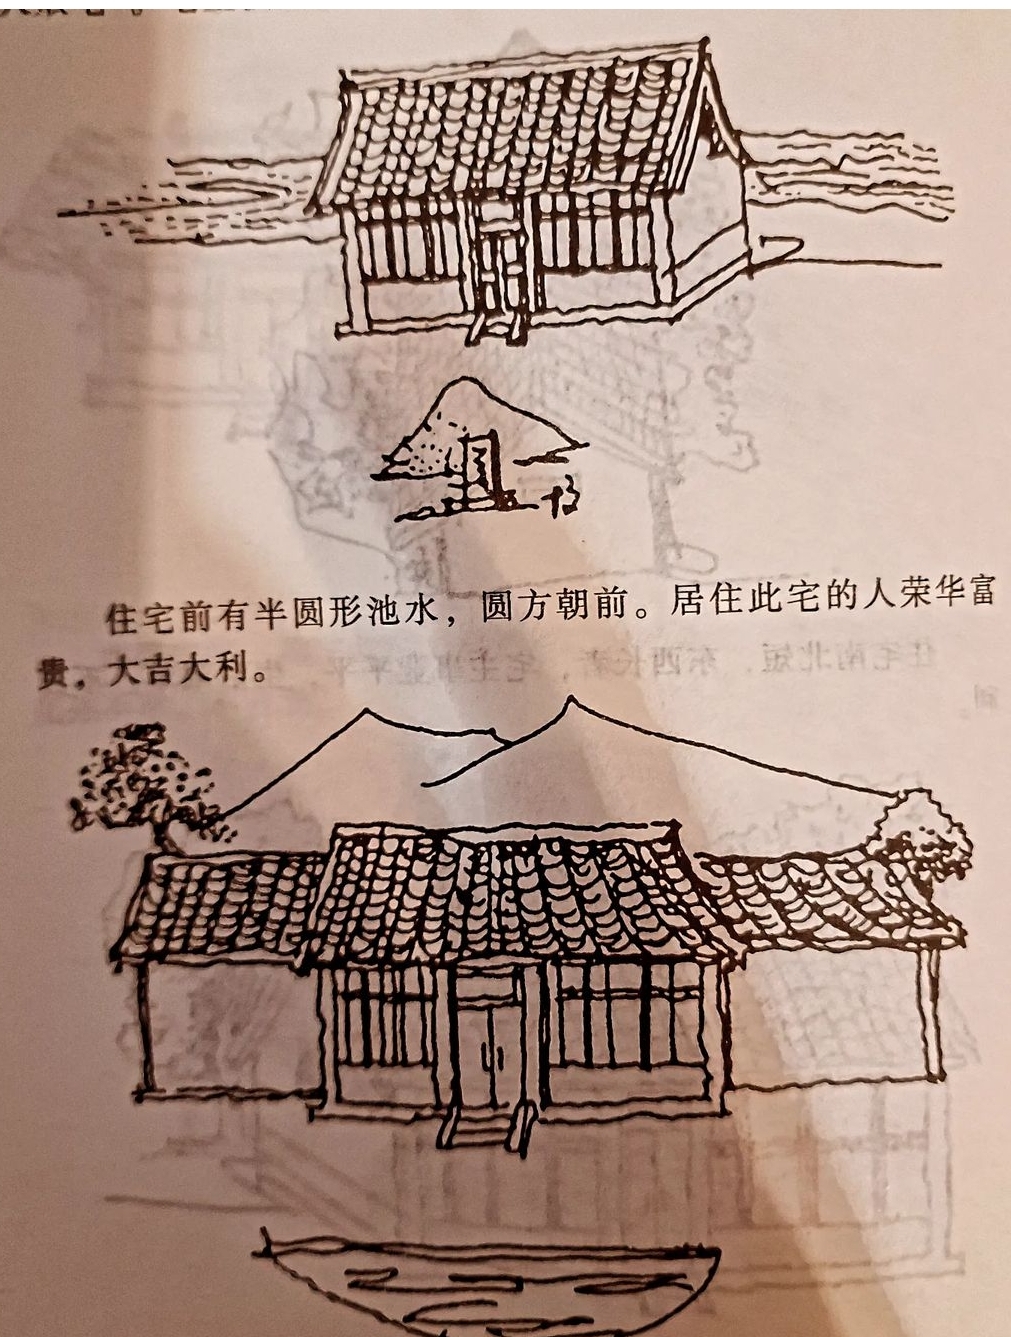 住宅前有半圆形池水，圆方朝前。居住此宅的人荣华富
贵，大吉大利。